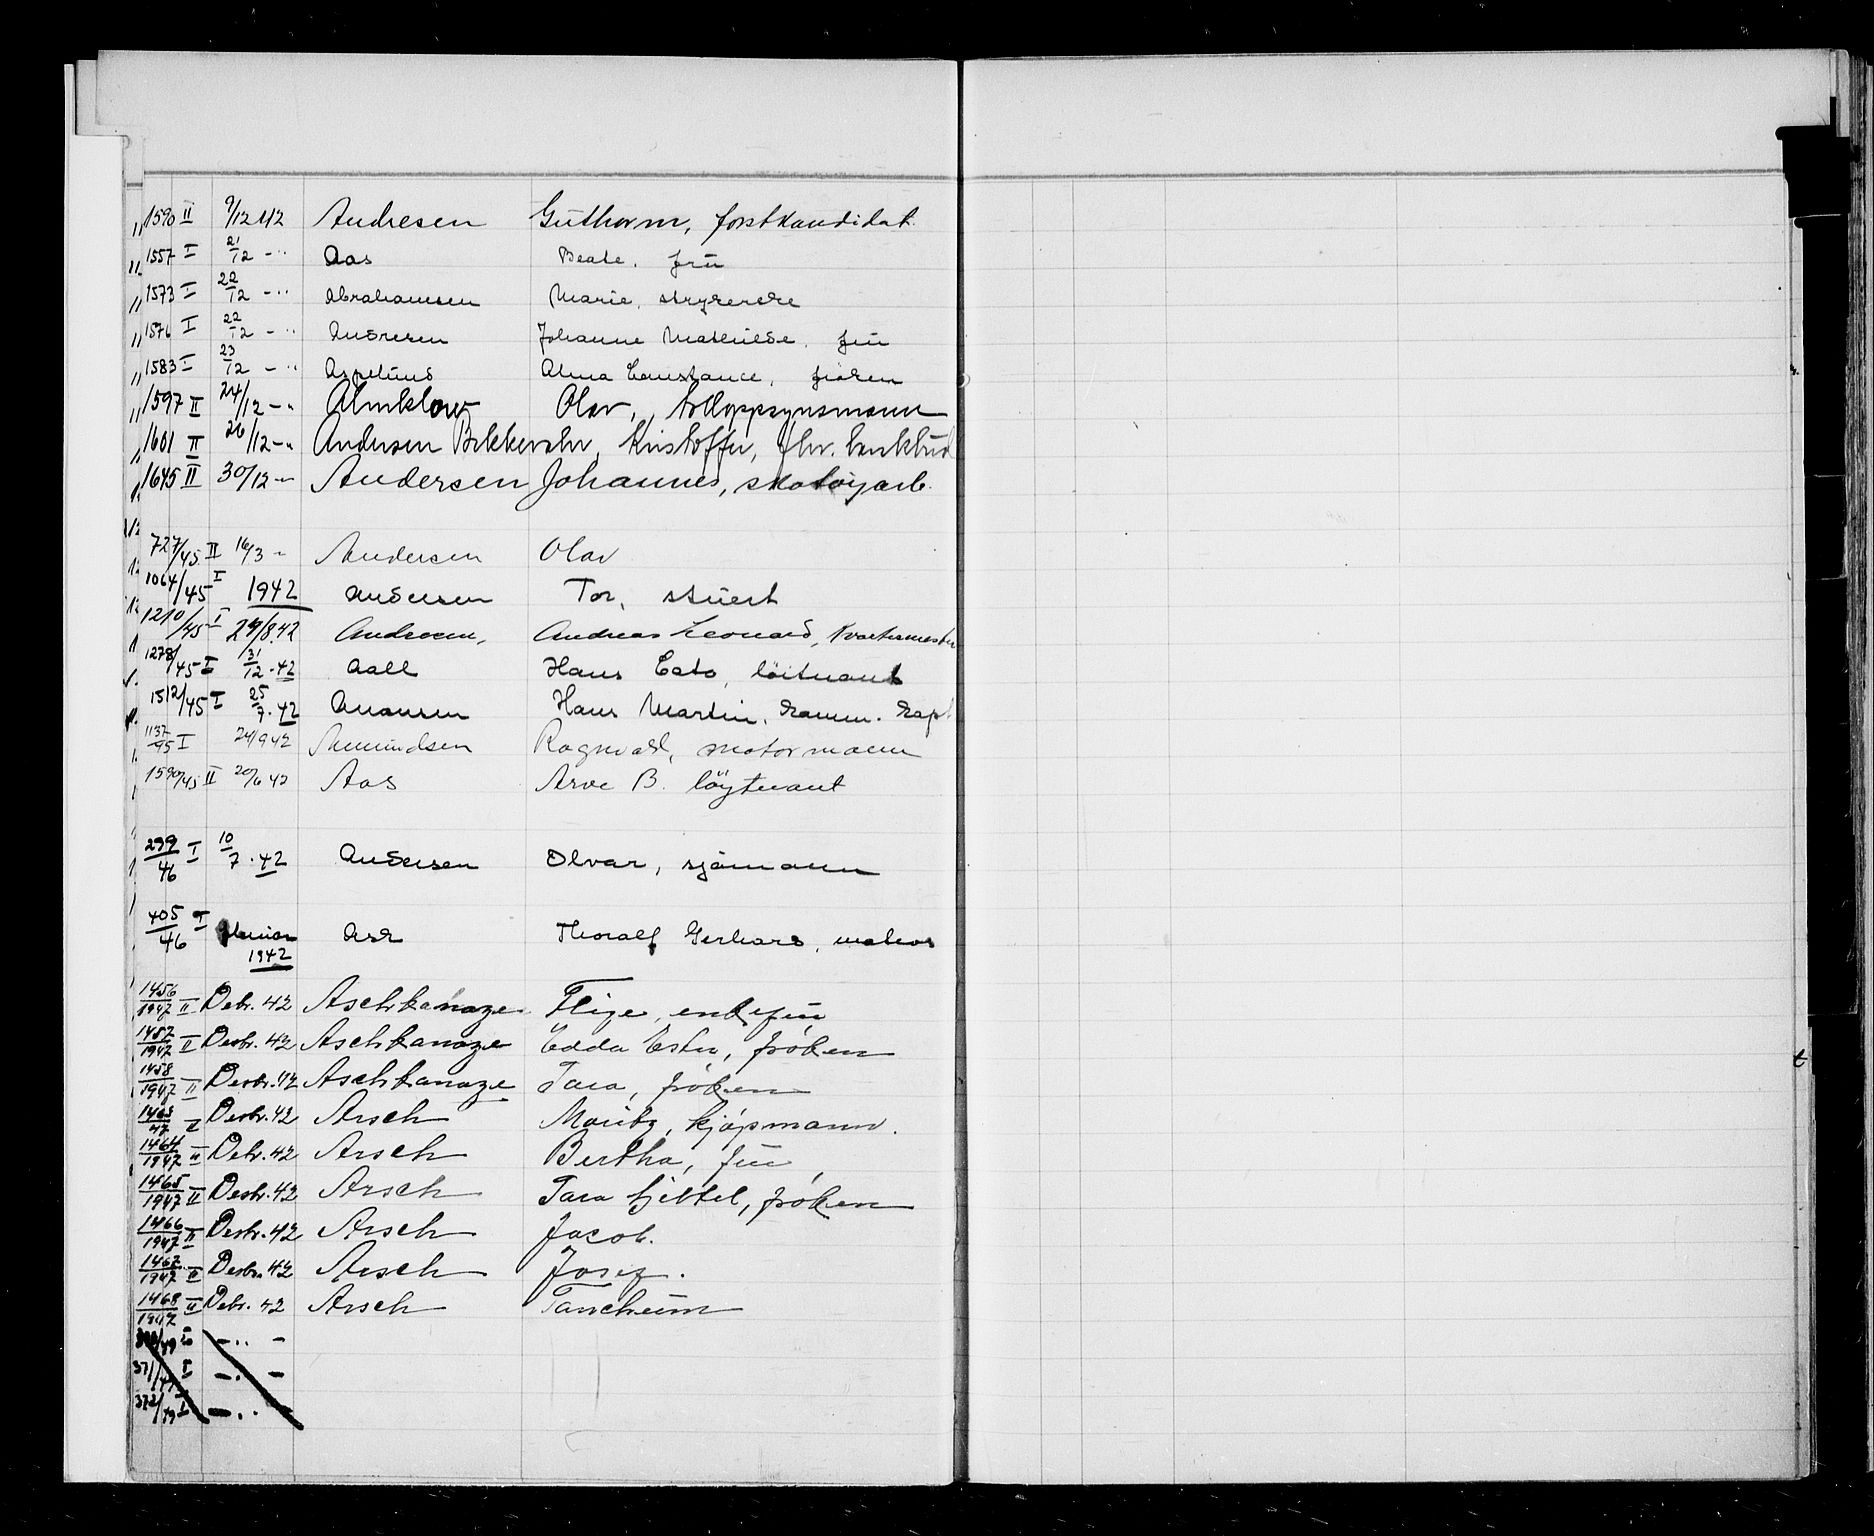 1590 II 9/12 42 Andresen Guthorm, forstkandidat.
1557 I 21/12 - " Aas Beate, frü
1573 I 22/12 - " Abrahamsen Marie, strykerske
1576 I 22/12 - " Andresen Johanne Mathilde, frü
1583 I 23/12 - " Aspelund Alma Constance, frøken
1597 II 24/12 - " Almklov Olav, tolloppsynsmann
1601 II 26/12 - " Andersen Bekkevahr, Kristoffer, fhv. bankbud
1645 II 30/12 - " Andersen Johannes, skotøyarb.
727/45 II 16/3 - Andersen Olav
1064/45 I 1942 Andersen Tor, stuert
1210/45 I 24/8.42 Andreas Leonard, kvartermester
1278/45 I 31/12-42 Aall Hans Cato, löitnant
1512/45 I 25/7.42 Hans Martin,
1137/45 I 24/9 42 Amundsen Ragnvald, motormann
1590/45 II 20/6 42 Aas Arve B. löytnant
299/46 I 10/7.42 Andersen Olvar, sjømann
405/46 I 1942 Ask Thoralf Gerhard, matros
1456/1947 II Debr. 42 Aschkanaze Flige, enkefrü
1457/1947 II Desbr. 42 Aschkanaze Edda Ester, frøken
1458/1947 II Desbr. 42 Aschkanaze Tara, frøken
1463/47 II Desbr. 42 Arsch Moritz, kjøpmann.
1464/1947 II Debr. 42 Arsch Bertha, frü
1465/1947 II Desbr. 42 Arsch Tara Gjettel, frøken
1466/1947 II Desbr. 42 Arsch Jacob.
1467/1947 II Desbr. 42 Arsch Josef.
1468/1947 II Debr. 42 Arsch Tancheüm
I - " -
371/49 I - " -
372/49 I - " -